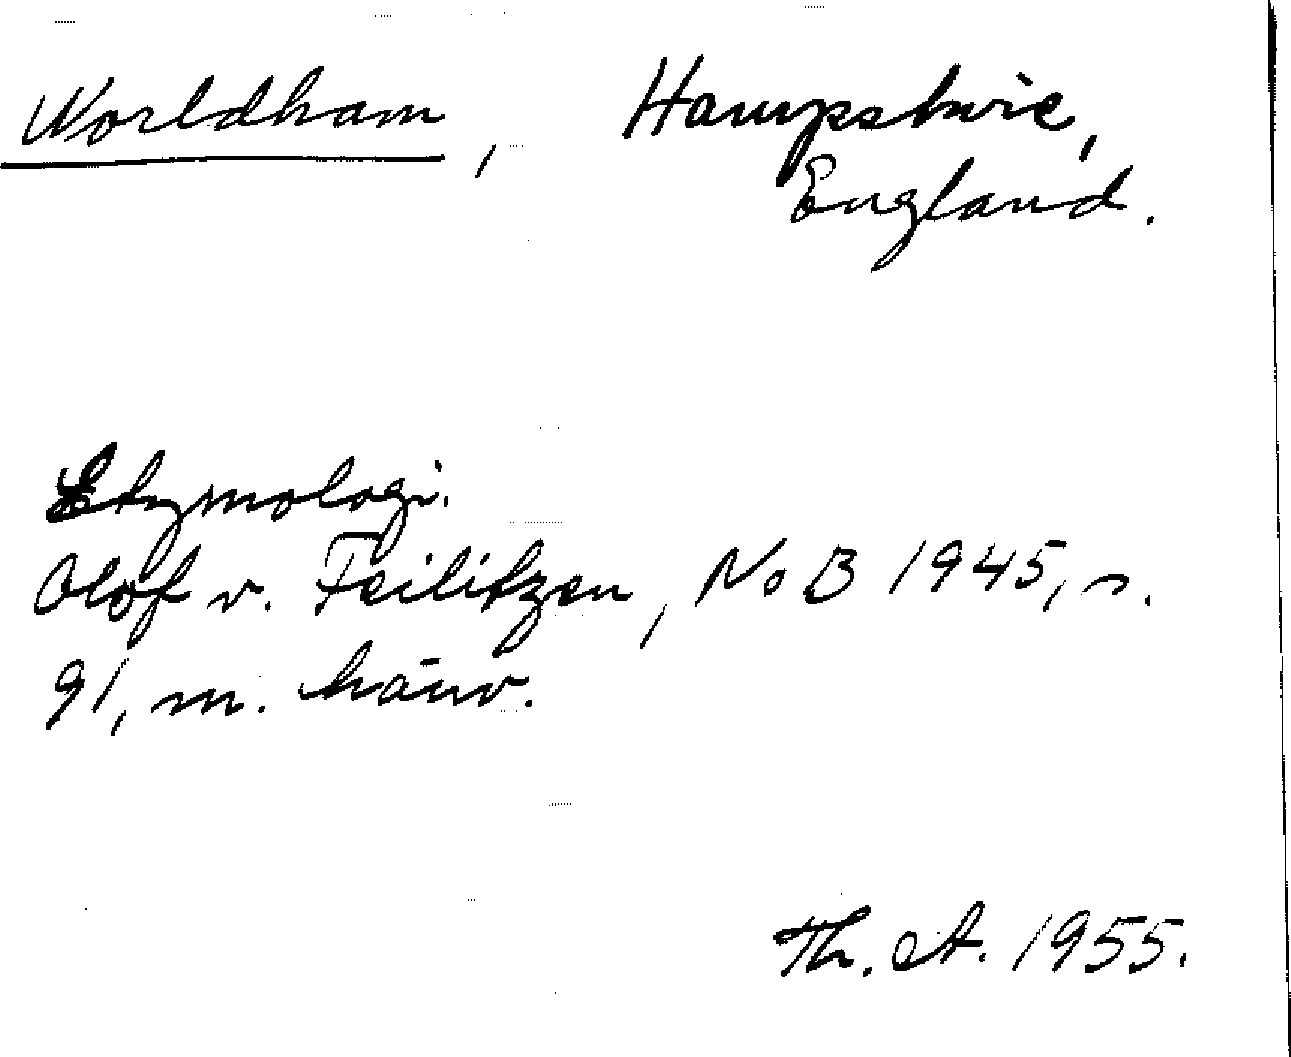 Worldham, Hampshire,
England.
Etymologi.
Olof v. Feilitzen, NoB 1945, s.
91, m. hänv.
Th. A. 1955.